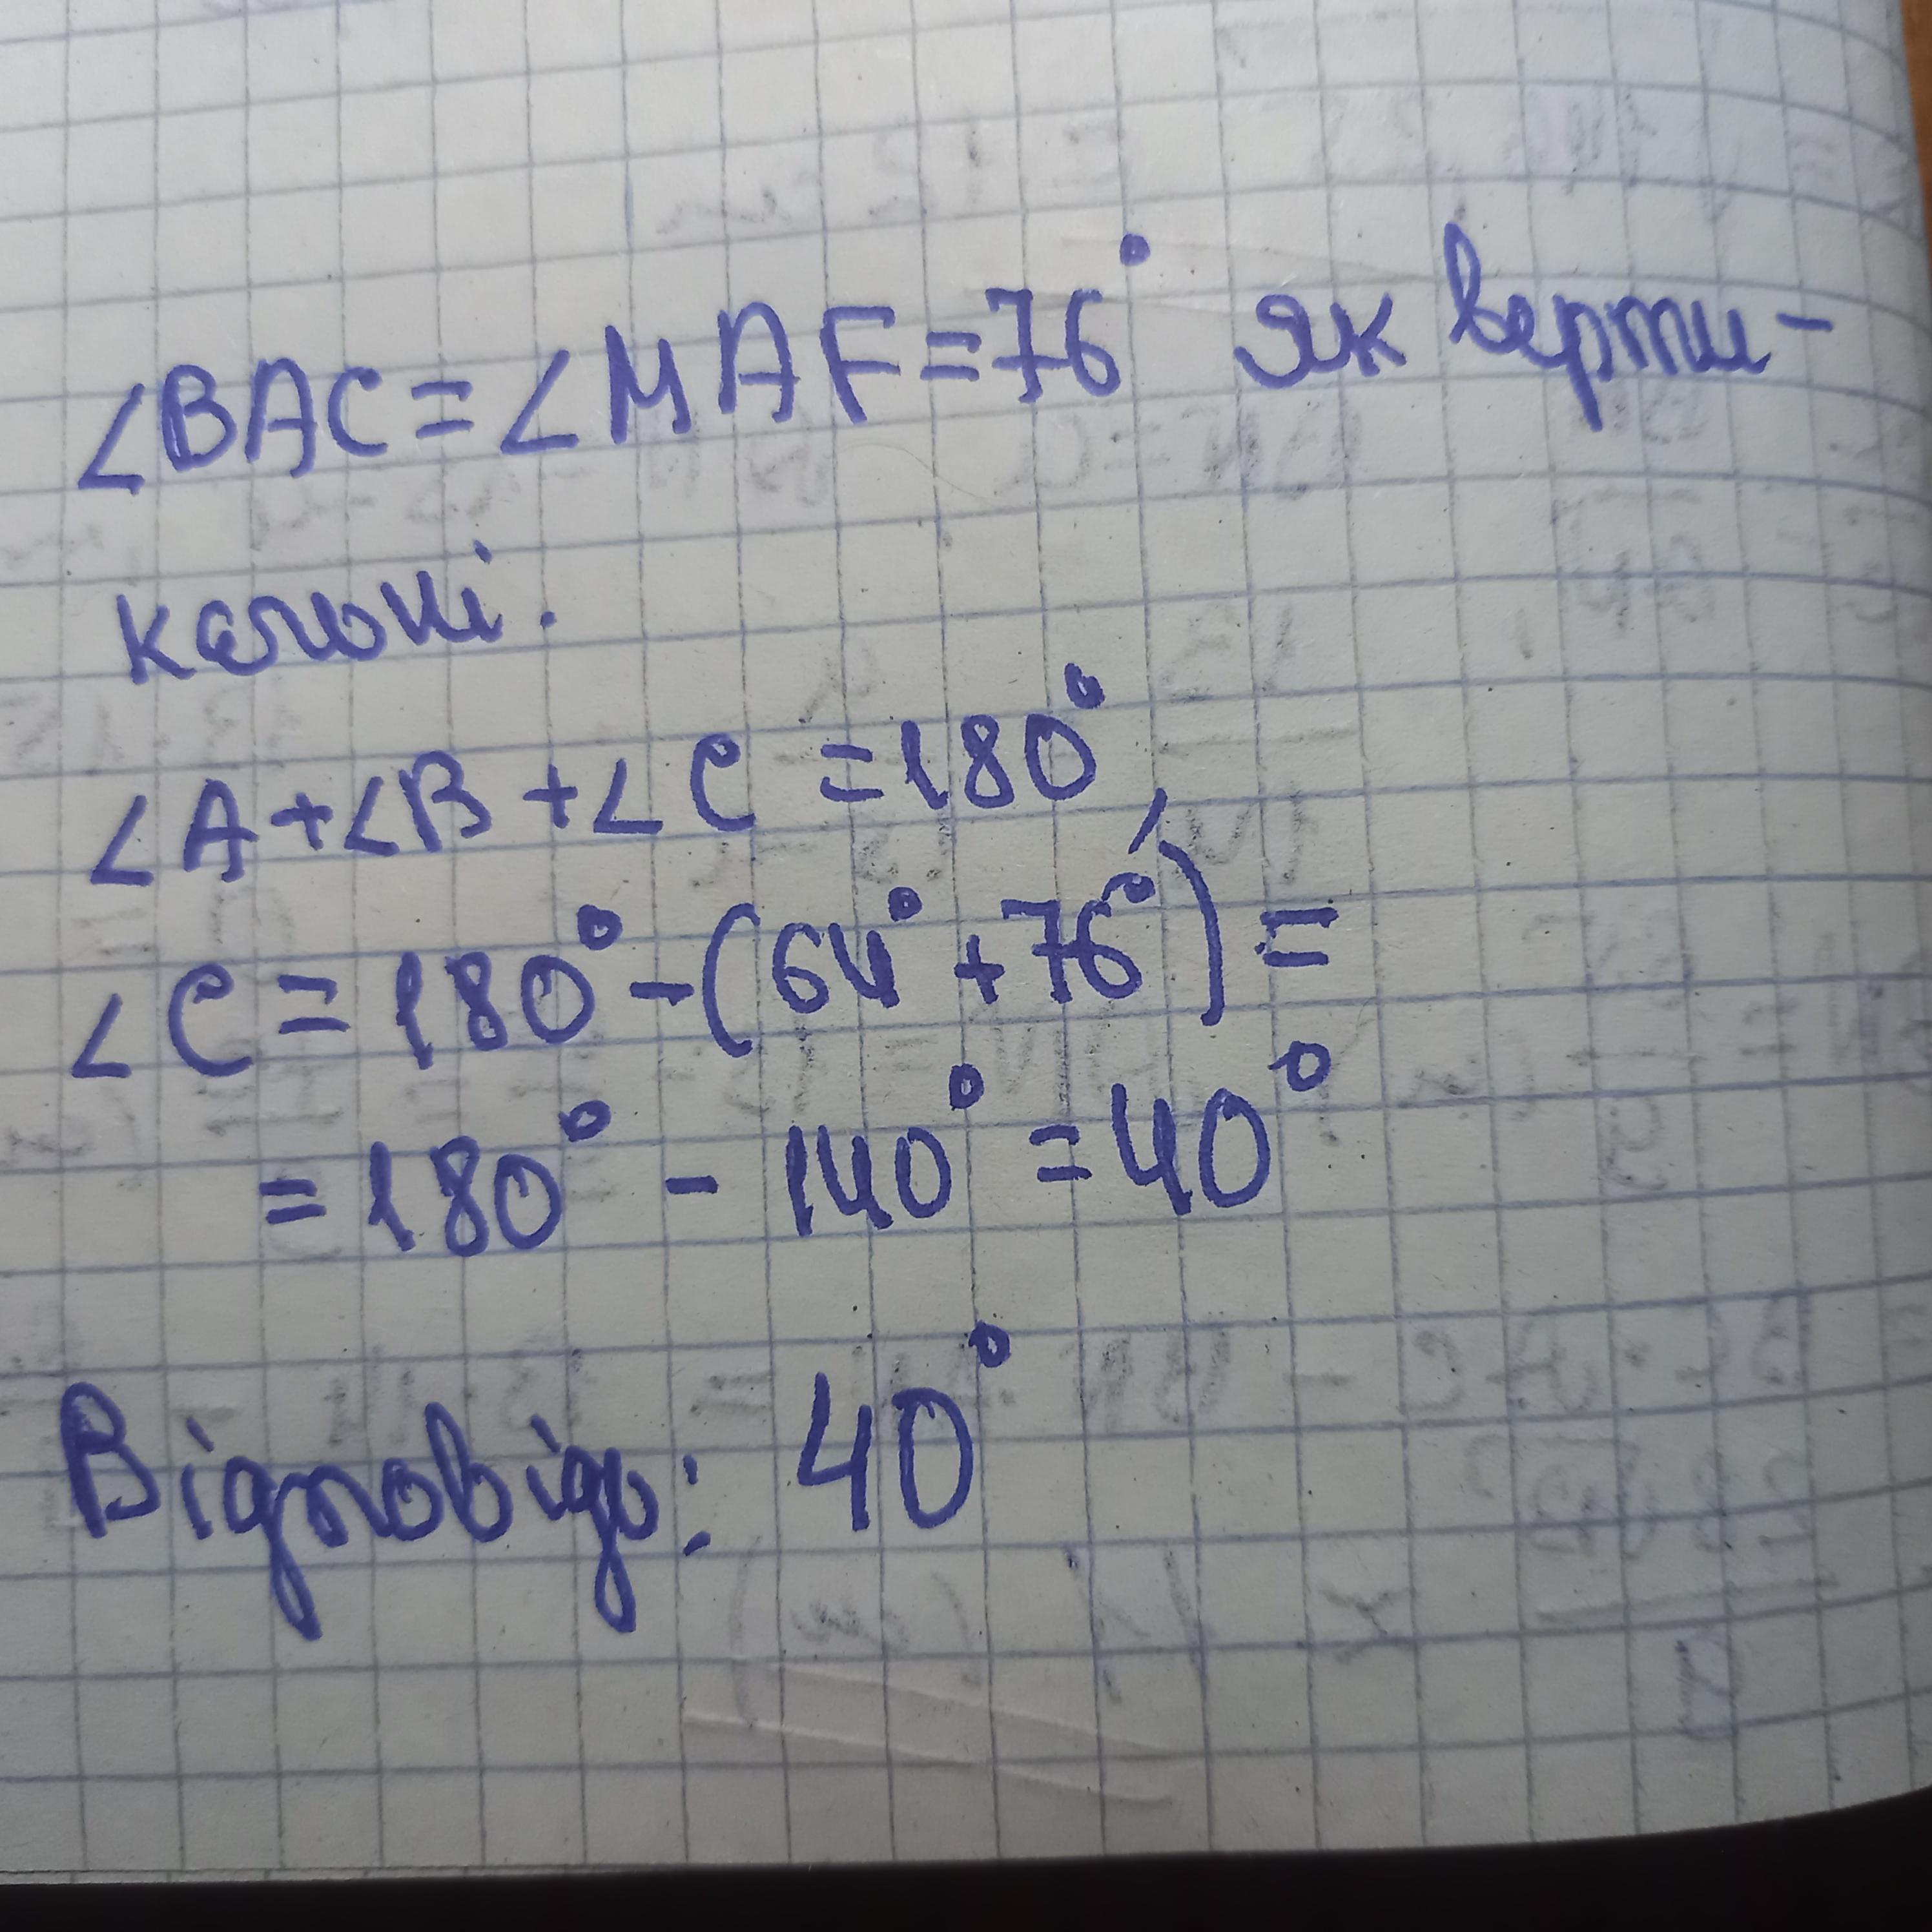 ∠BAC=∠MAF=76° як верти-
кальні.
∠A+∠B+∠C=180°,
∠C=180°-(64°+76°)=
=180°-140°=40°
Відповідь: 40°